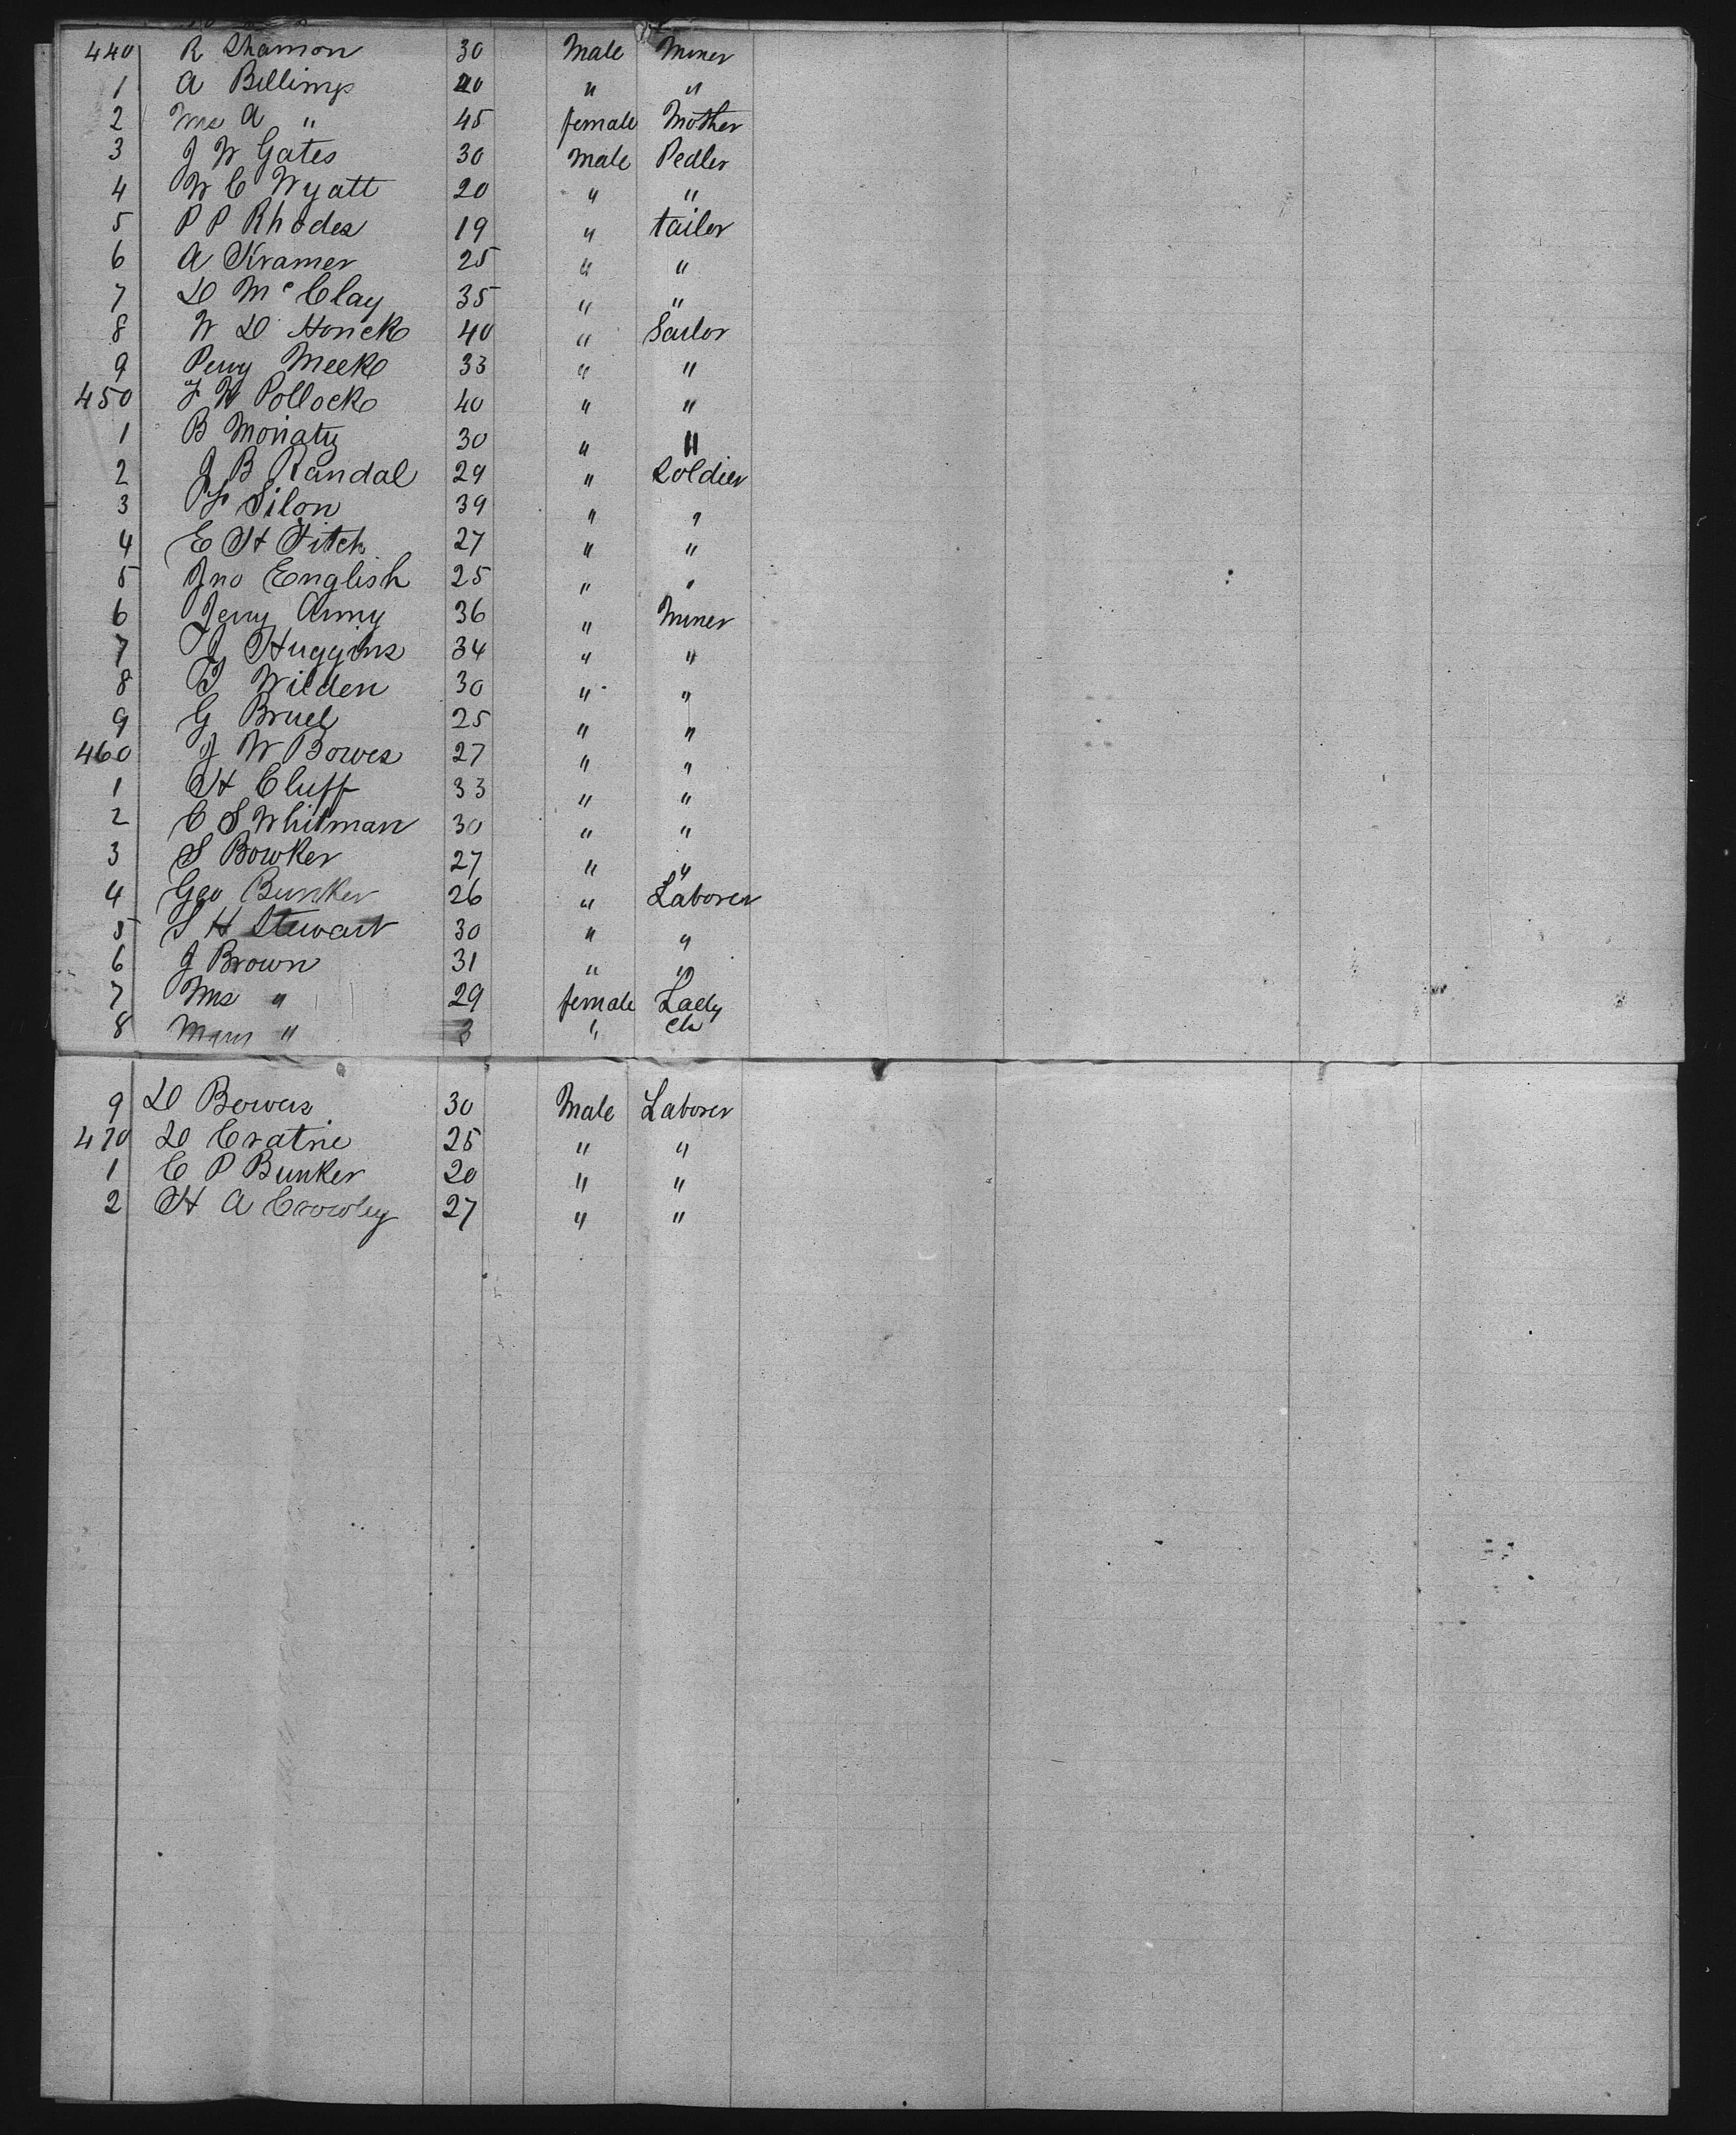 440 R Shamon 30 Male Miner
1 A Billings 20 " "
2 Mrs A " 45 female Mother
3 J W Gates 30 Male Pedler
4 W C Wyatt 20 " "
5 P P Rhodes 19 " tailor
6 A Kramer 25 " "
7 D McClay 35 " "
8 W D Honck 40 " Sailor
9 Perry Meek 33 " "
450 J W Pollock 40 " "
1 B Moriaty 30 " "
2 J B Randal 29 " Soldier
3 Silon 39 " "
4 E H Fitch 27 " "
5 Jno English 25 " "
6 Jerry Army 36 " Miner
7 T J Huggins 34 " "
8 Wilden 30 " "
9 G Bruel 25 " "
460 J W Bowes 27 " "
1 H Cluff 33 " "
2 C S Whitman 30 " "
3 S Bowker 27 " "
4 Geo Bunker 26 " Laborer
5 S H Stewart 30 " "
6 J Brown 31 " "
7 Mrs " 29 female Lady
8 Mary " 3 " Ch
9 D Bowers 30 Male Laborer
470 D Cratrie 25 " "
1 C P Bunker 20 " "
2 H A Crowley 27 " "